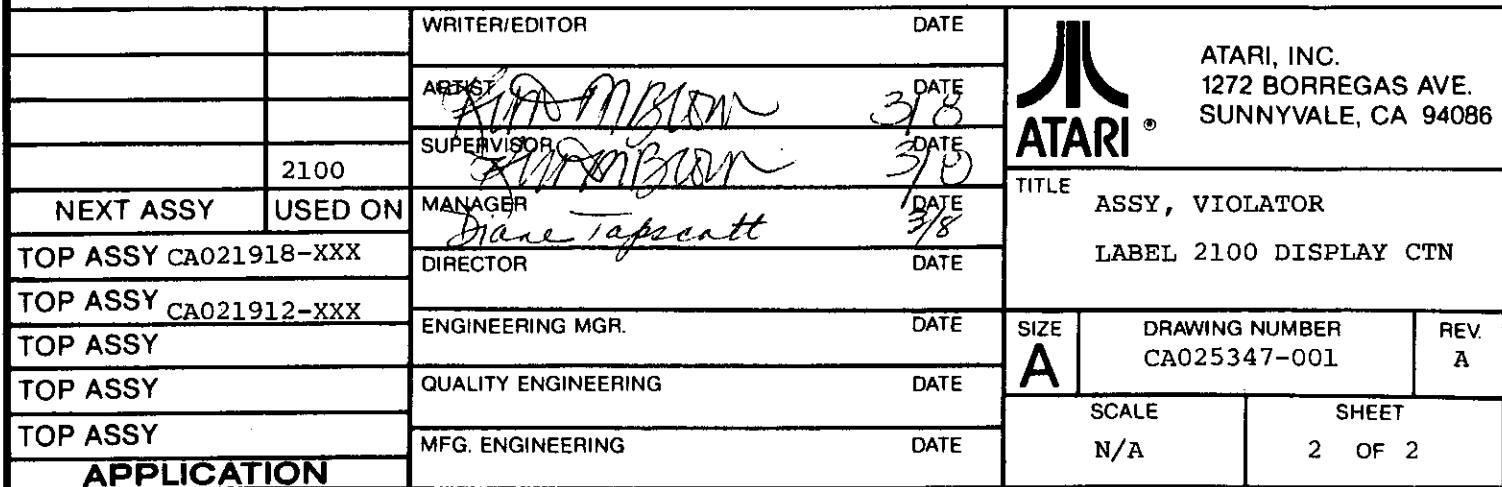 2100
NEXT ASSY USED ON
TOP ASSY CA021918-XXX
TOP ASSY CA021912-XXX
TOP ASSY
TOP ASSY
TOP ASSY
APPLICATION
WRITER/EDITOR DATE
ARTIST DATE
3/8
SUPERVISOR DATE
MANAGER DATE
Diane Tapscott 3/8
DIRECTOR DATE
ENGINEERING MGR. DATE
QUALITY ENGINEERING DATE
MFG. ENGINEERING DATE
ATARI ®
ATARI, INC.
1272 BORREGAS AVE.
SUNNYVALE, CA 94086
TITLE
ASSY, VIOLATOR
LABEL 2100 DISPLAY CTN
SIZE
A
DRAWING NUMBER
CA025347-001
REV.
A
SCALE
N/A
SHEET
2 OF 2